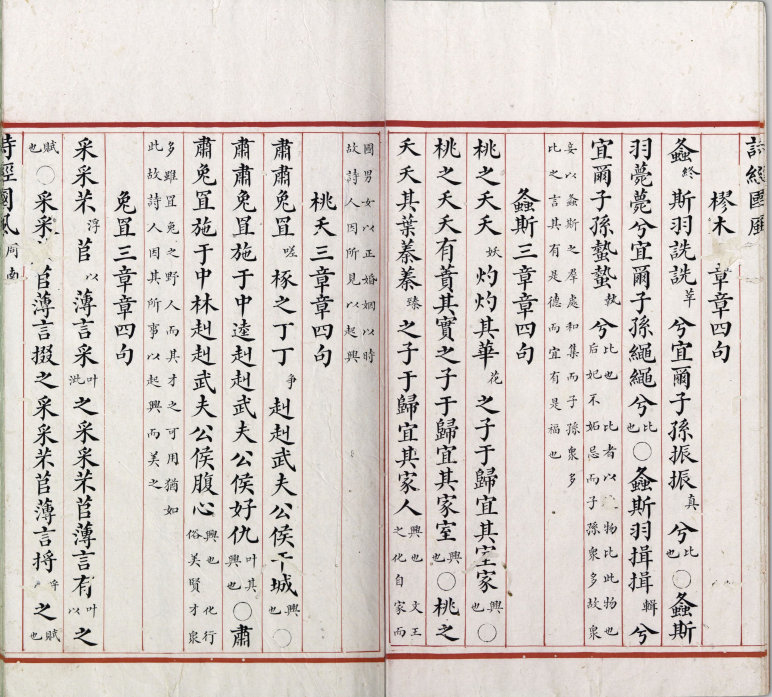 詩經國風
樛木 章章四句
螽終斯羽詵詵莘兮宜爾子孫振振真兮比也○螽斯
羽薨薨兮宜爾子孫繩繩兮比也○螽斯羽揖揖輯兮
宜爾子孫蟄蟄執兮比也 比者以 物比此物也后妃不妬忌而子孫衆多故衆
妾以螽斯之羣處和集而子孫衆多比之言其有是德而宜有是福也
螽斯三章章四句
桃之夭夭妖灼灼其華花之子于歸宜其室家興也○
桃之夭夭有蕡其實之子于歸宜其家室興也○桃之
夭夭其葉蓁蓁臻之子于歸宜其家人興也 文王之化自家而
國男女以正婚姻以時故詩人因所見以起興
桃夭三章章四句
肅肅兔罝嗟椓之丁丁爭赳赳武夫公侯干城興也○
肅肅兔罝施于中逵赳赳武夫公侯好仇叶其興也○肅
肅兔罝施于中林赳赳武夫公侯腹心興也 化行俗美賢才衆
多雖罝兔之野人而其才之可用猶如此故詩人因其所事以起興而美之
兔罝三章章四句
采采芣浮苢以薄言采叶泚之采采芣苢薄言有叶以之
賦也○采采 苢薄言掇之采采芣苢薄言捋 之賦也
詩經國風周南